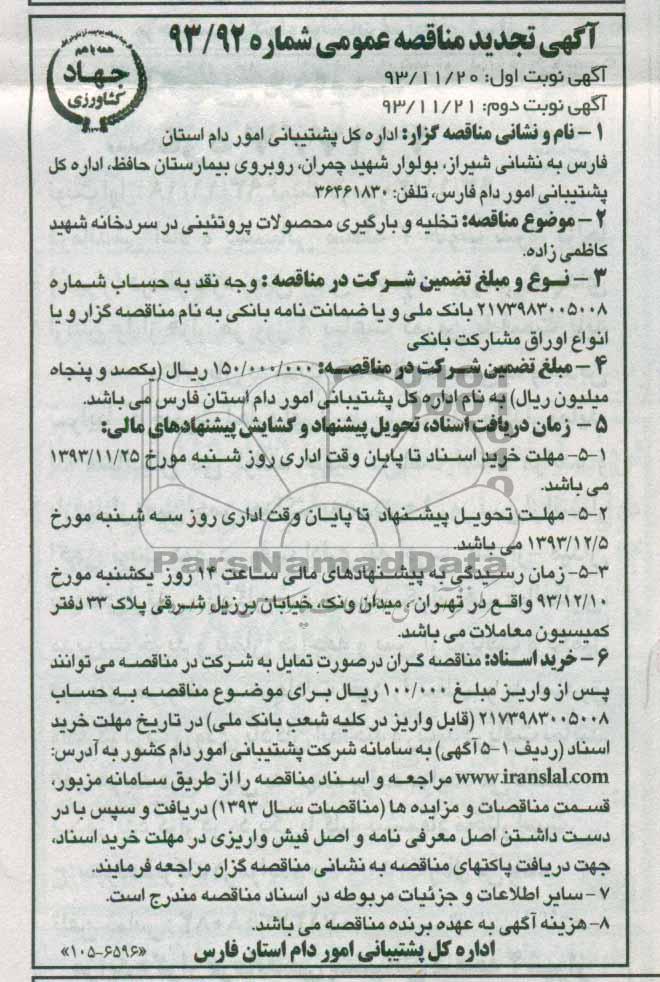 آگهی تجدید مناقصه عمومی شماره ۹۳/۹۲
همه با هم
جهاد
کشاورزی
آگهی نوبت اول: ۹۳/۱۱/۲۰
آگهی نوبت دوم: ۹۳/۱۱/۲۱
۱- نام و نشانی مناقصه گزار: اداره کل پشتیبانی امور دام استان
فارس به نشانی شیراز، بولوار شهید چمران، روبروی بیمارستان حافظ، اداره کل
پشتیبانی امور دام فارس، تلفن: ۳۶۴۶۱۸۳۰
۲- موضوع مناقصه: تخلیه و بارگیری محصولات پروتئینی در سردخانه شهید
کاظمی زاده.
۳- نوع و مبلغ تضمین شرکت در مناقصه: وجه نقد به حساب شماره
۲۱۷۳۹۸۳۰۰۵۰۰۸ بانک ملی و یا ضمانت نامه بانکی به نام مناقصه گزار و یا
انواع اوراق مشارکت بانکی
۴- مبلغ تضمین شرکت در مناقصه: ۱۵۰/۰۰۰/۰۰۰ ریال (یکصد و پنجاه
میلیون ریال) به نام اداره کل پشتیبانی امور دام استان فارس می باشد.
۵- زمان دریافت اسناد، تحویل پیشنهاد و گشایش پیشنهادهای مالی:
۵-۱- مهلت خرید اسناد تا پایان وقت اداری روز شنبه مورخ ۱۳۹۳/۱۱/۲۵
می باشد.
۵-۲- مهلت تحویل پیشنهاد تا پایان وقت اداری روز سه شنبه مورخ
۱۳۹۳/۱۲/۵ می باشد.
ParsNamadData
۵-۳- زمان رسیدگی به پیشنهادهای مالی ساعت ۱۴ روز یکشنبه مورخ
۹۳/۱۲/۱۰ واقع در تهران، میدان ونک، خیابان برزیل شرقی پلاک ۳۳ دفتر
کمیسیون معاملات می باشد.
۶- خرید اسناد: مناقصه گران درصورت تمایل به شرکت در مناقصه می توانند
پس از واریز مبلغ ۱۰۰/۰۰۰ ریال برای موضوع مناقصه به حساب
۲۱۷۳۹۸۳۰۰۵۰۰۸ (قابل واریز در کلیه شعب بانک ملی) در تاریخ مهلت خرید
اسناد (ردیف ۱-۵ آگهی) به سامانه شرکت پشتیبانی امور دام کشور به آدرس:
www.iranslal.com مراجعه و اسناد مناقصه را از طریق سامانه مزبور،
قسمت مناقصات و مزایده ها (مناقصات سال ۱۳۹۳) دریافت و سپس با در
دست داشتن اصل معرفی نامه و اصل فیش واریزی در مهلت خرید اسناد،
جهت دریافت پاکتهای مناقصه به نشانی مناقصه گزار مراجعه فرمایند.
۷- سایر اطلاعات و جزئیات مربوطه در اسناد مناقصه مندرج است.
۸- هزینه آگهی به عهده برنده مناقصه می باشد.
اداره کل پشتیبانی امور دام استان فارس «۱۰۵-۶۵۹۶»